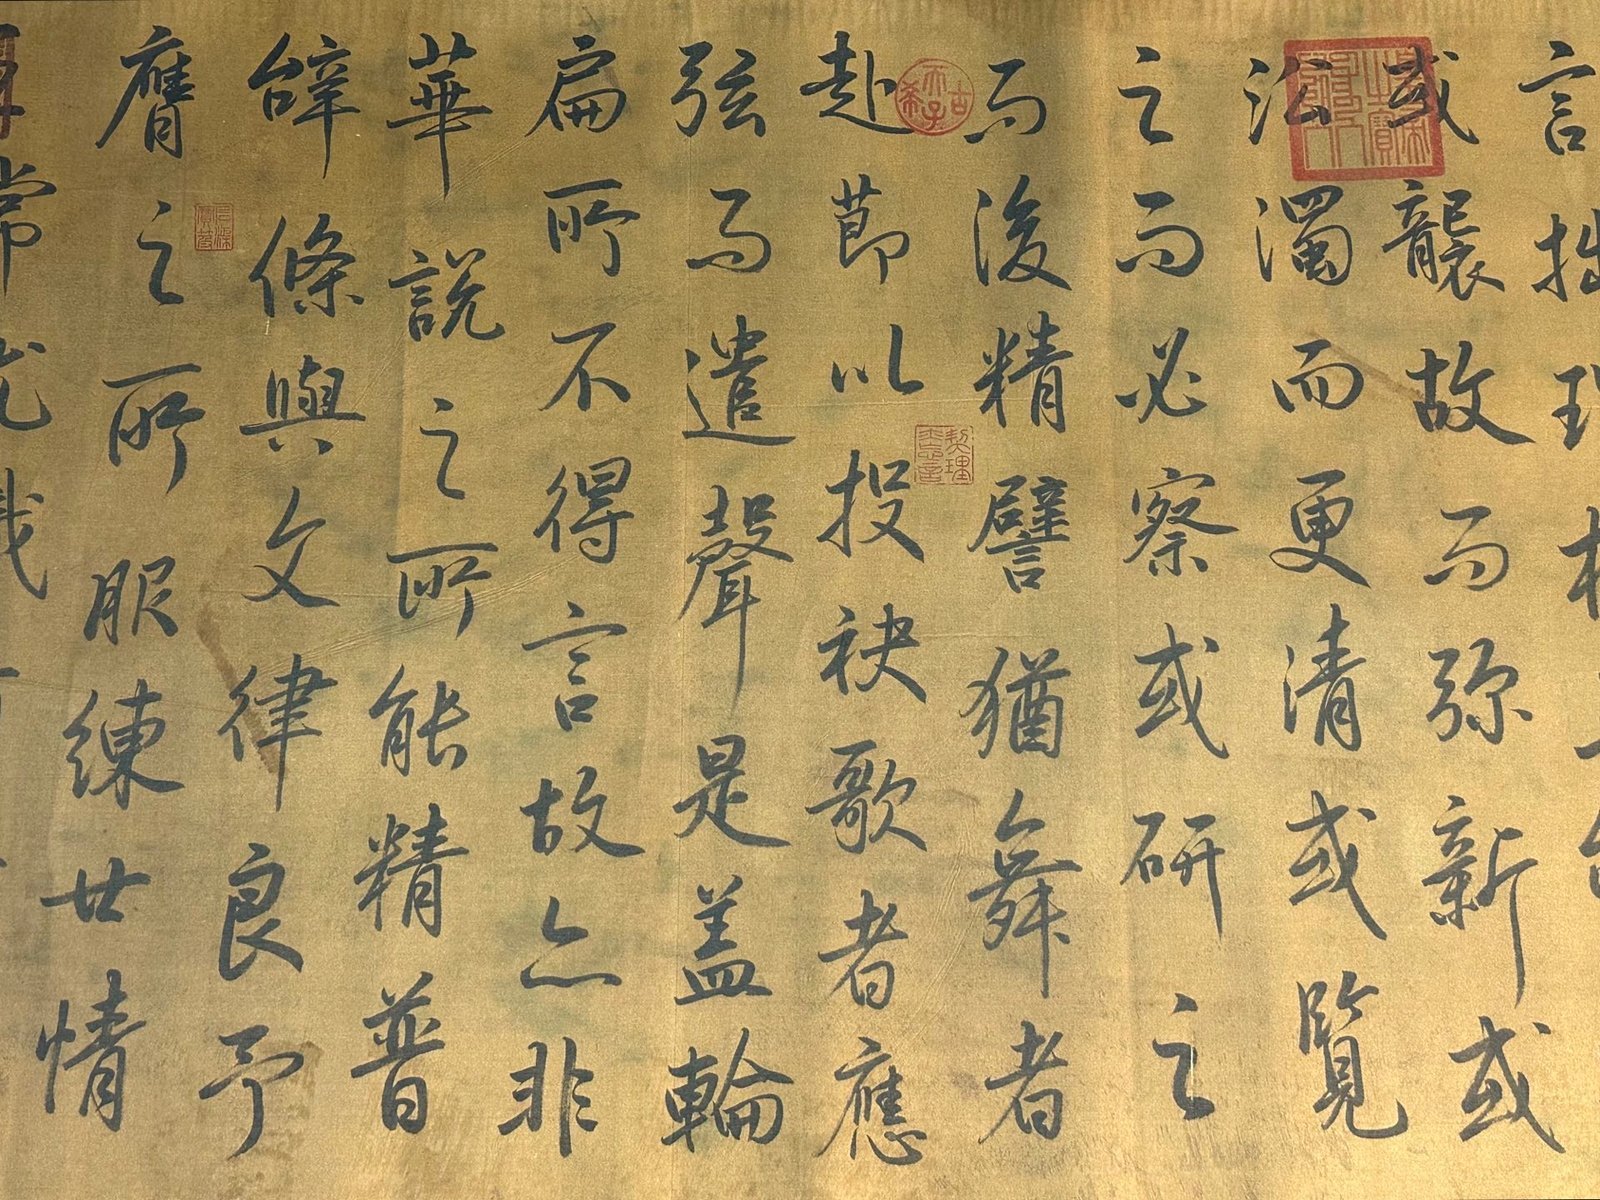 言拙理
或襲故而弥新或
沿濁而更清或覽
之而必察或研之
而後精譬猶舞者
赴莭以投袂歌者應
弦而遣聲是盖輪
扁所不得言故亦非
華說之所能精普
辭條與文律良予
膺之所服練世情
常尤識
古希天子